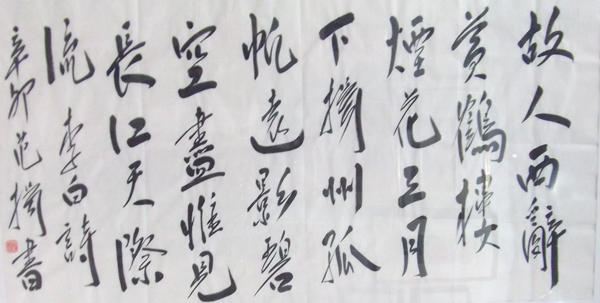 故人西辭
黄鶴樓
煙花三月
下揚州孤
帆遠影碧
空盡惟見
長江天際
流 李白詩
辛卯范揚書